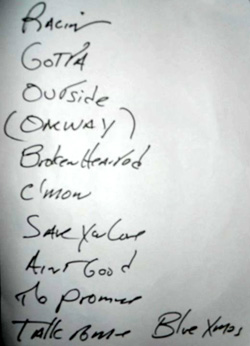 Racin
GOTTA
OUTSIDE
(ONEWAY)
BrokenHearted
C'mon
SAVE Your Love
AIN'T GOOD
No Promise
TALK To me Blue Xmas